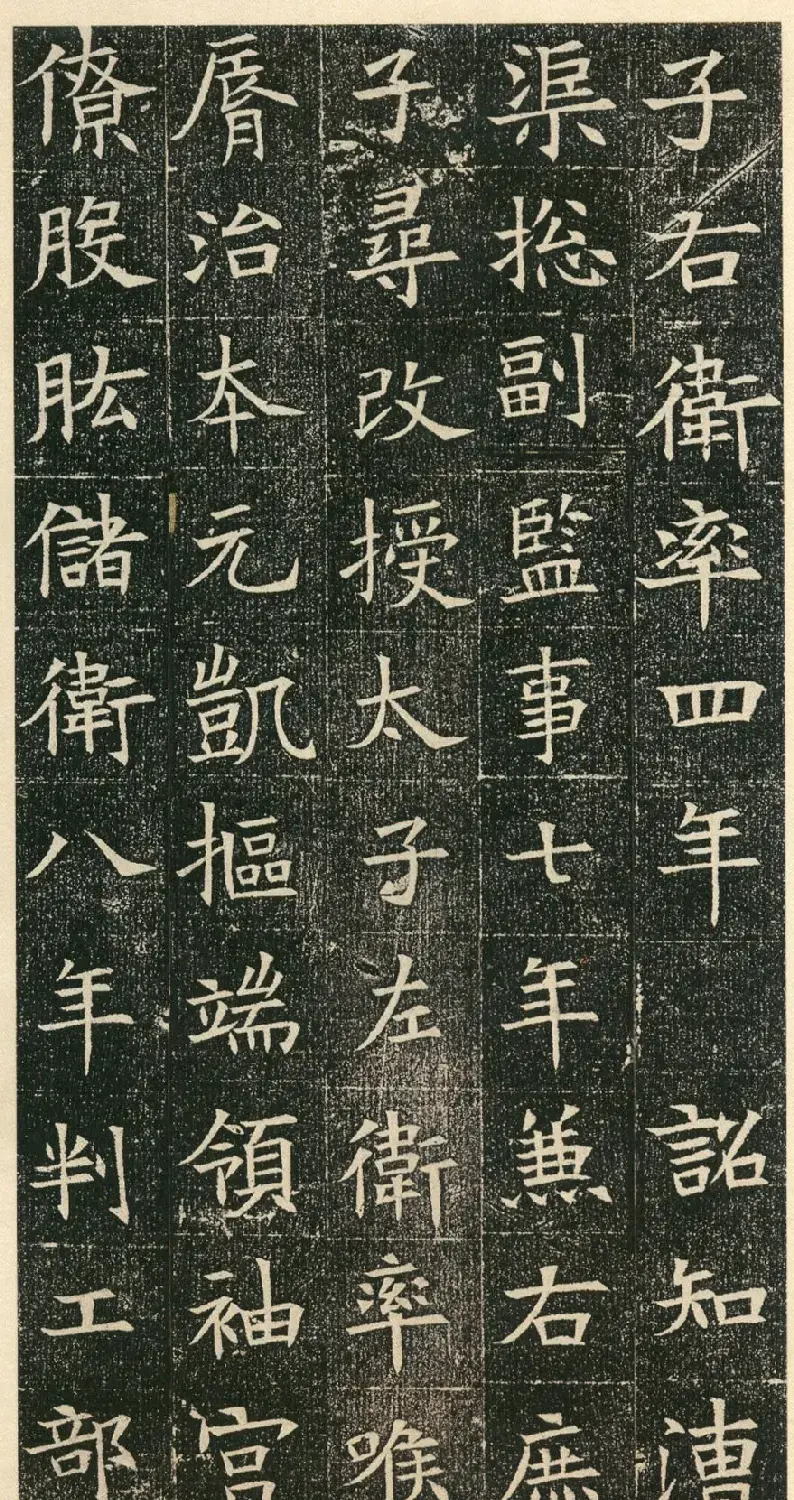 子右衛率四年詔知漕
渠捴副監事七年兼右庶
子尋改授太子左衛率喉
脣治本元凱摳端領袖宮
僚股肱儲衛八年判工部